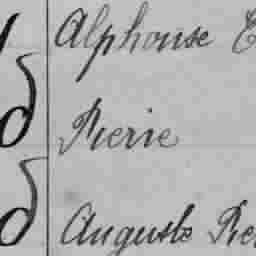 Alphonse
Pierre
Auguste